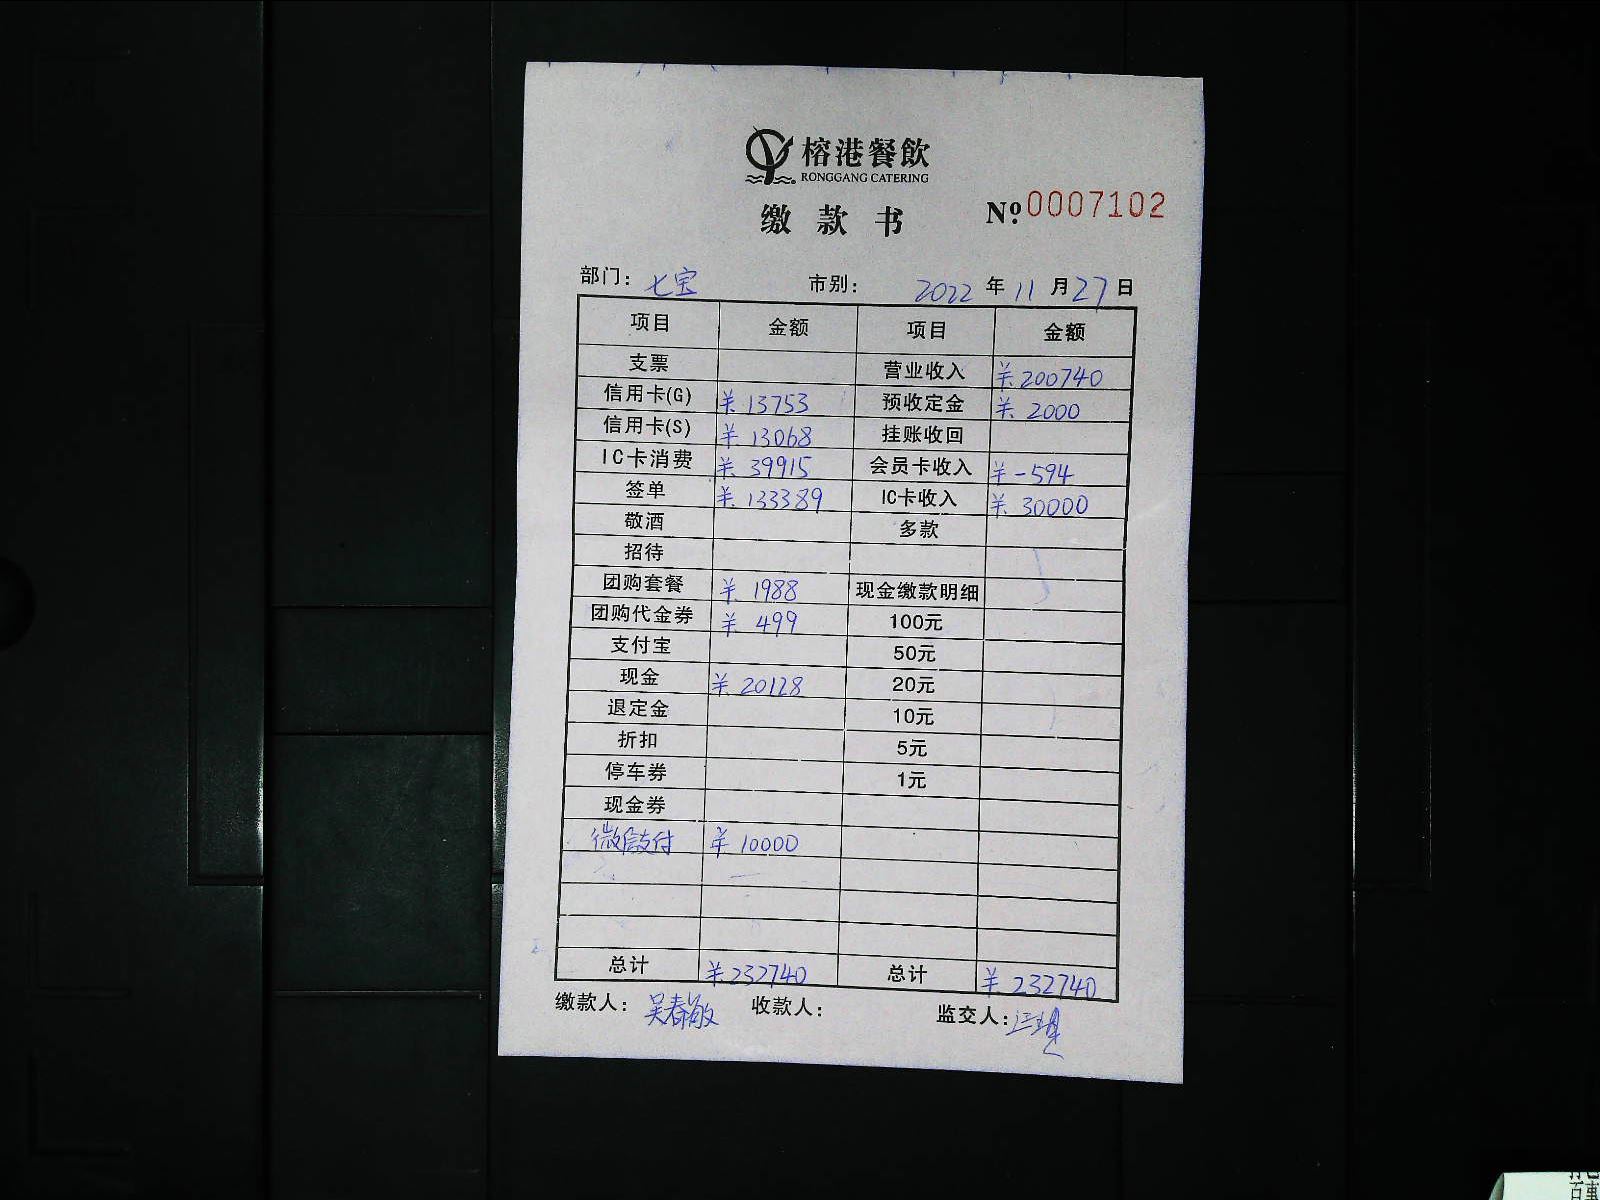 榕港餐飲
RONGGANG CATERING
缴款书 Nº 0007102
部门: 七宝 市别: 2022 年 11 月 27 日
项目 金额 项目 金额
支票 营业收入 ¥ 200740
信用卡(G) ¥ 13753 预收定金 ¥ 2000
信用卡(S) ¥ 13068 挂账收回
IC卡消费 ¥ 39915 会员卡收入 ¥ -594
签单 ¥ 133389 IC卡收入 ¥ 30000
敬酒 多款
招待
团购套餐 ¥ 1988 现金缴款明细
团购代金券 ¥ 499 100元
支付宝 50元
现金 ¥ 20128 20元
退定金 10元
折扣 5元
停车券 1元
现金券
微信支付 ¥ 10000
总计 ¥ 232740 总计 ¥ 232740
缴款人: 吴春敏 收款人: 监交人: